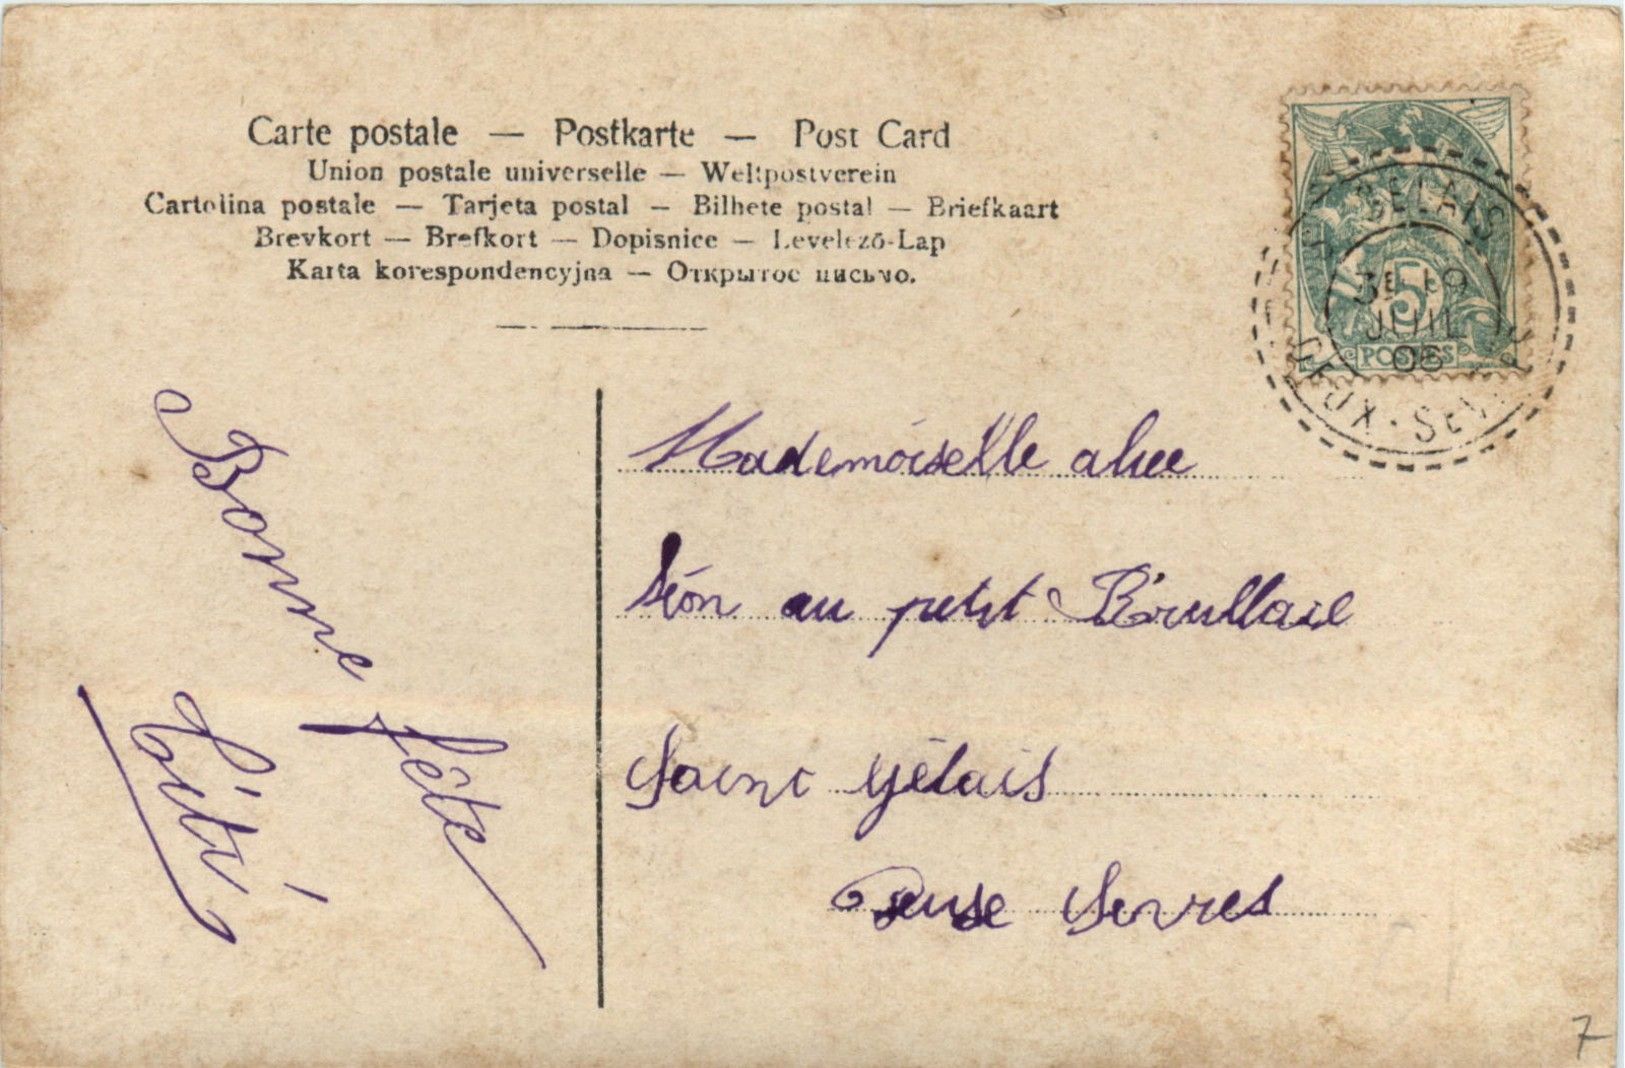 Carte postale — Postkarte — Post Card
Union postale universelle — Weltpostverein
Cartolina postale — Tarjeta postal — Bilhete postal — Briefkaart
Brevkort — Brefkort — Dopisnice — Levelező-Lap
Karta korespondencyjna — Открытое письмо.
GELAIS
3E 19
JUIL
06
DEUX-SEVRES
5
POSTES
Bonne
fête
Mademoiselle alice
au petit
Saint Gélais
Deuse Sevres
7